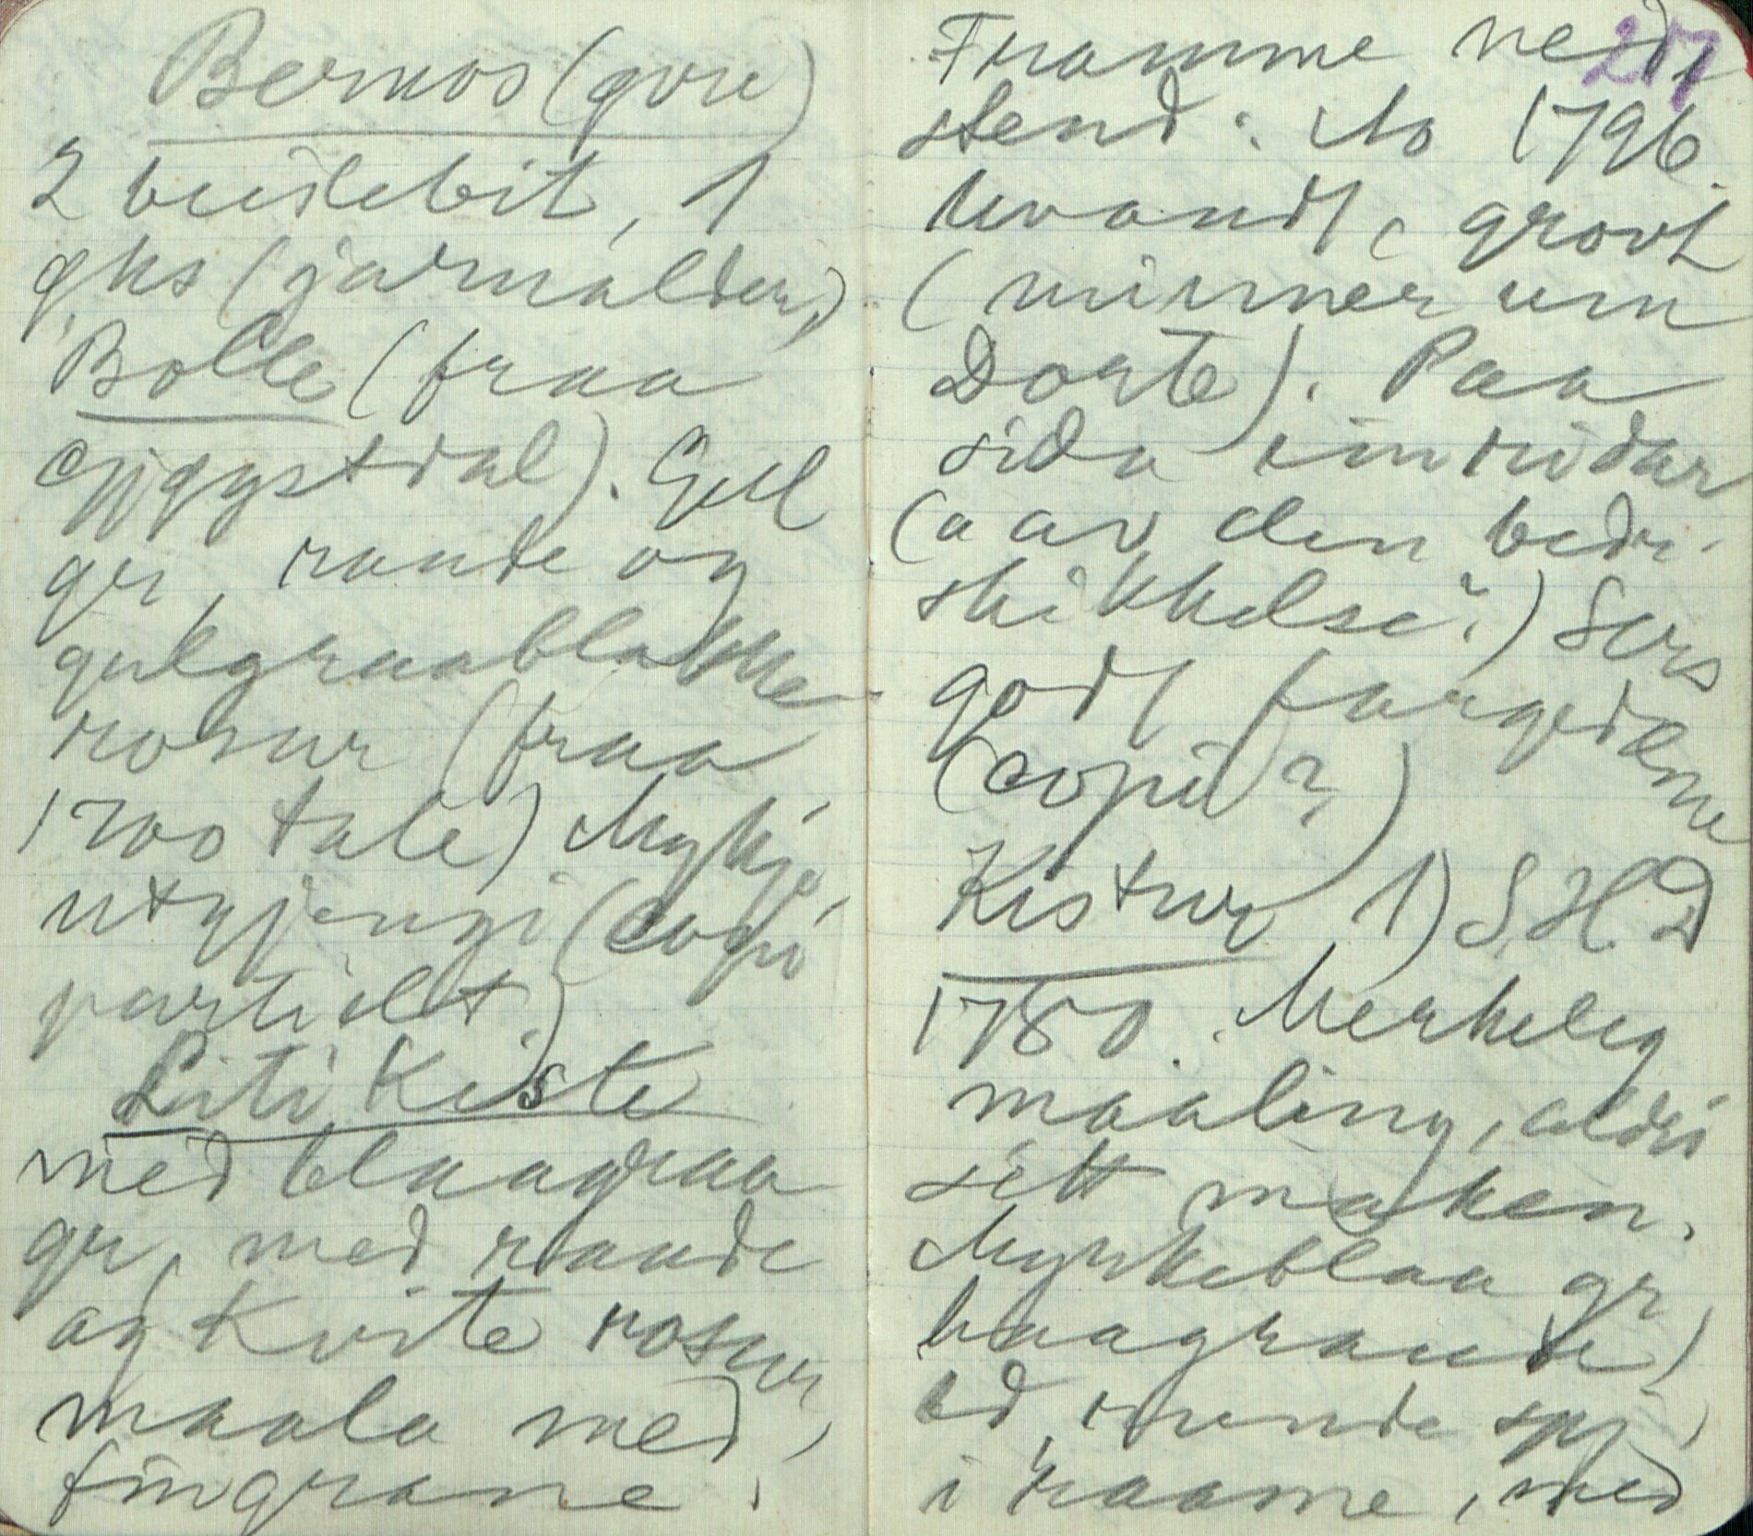 Bermos (gvre)
2 beislebit, 1
øks (jarnalder)
Bolle (fraa
Eggystdal). Gul
gr, raude og
gulgraablakke
rosur (fraa
1700 tale) Mykje
utgjengi (copi
partielt)
Liti Kiste
med blaagraa
gr, med raude
og Kvite rosur
maala med
fingrane.
217
Framme nedi
stend: No 1796.
Uvandt, grovt
(minner um
Dorte). Paa
sida ein ridar
(a av den bedr.
skikkelse?) Sers
godt fargedæme
(copi?)
Kistur 1) S.H.D
1780. Merkeleg
maaling, aldri
sett maken.
Myrkeblaa gr
baagraute)
bd, runde sp,
i raame, med